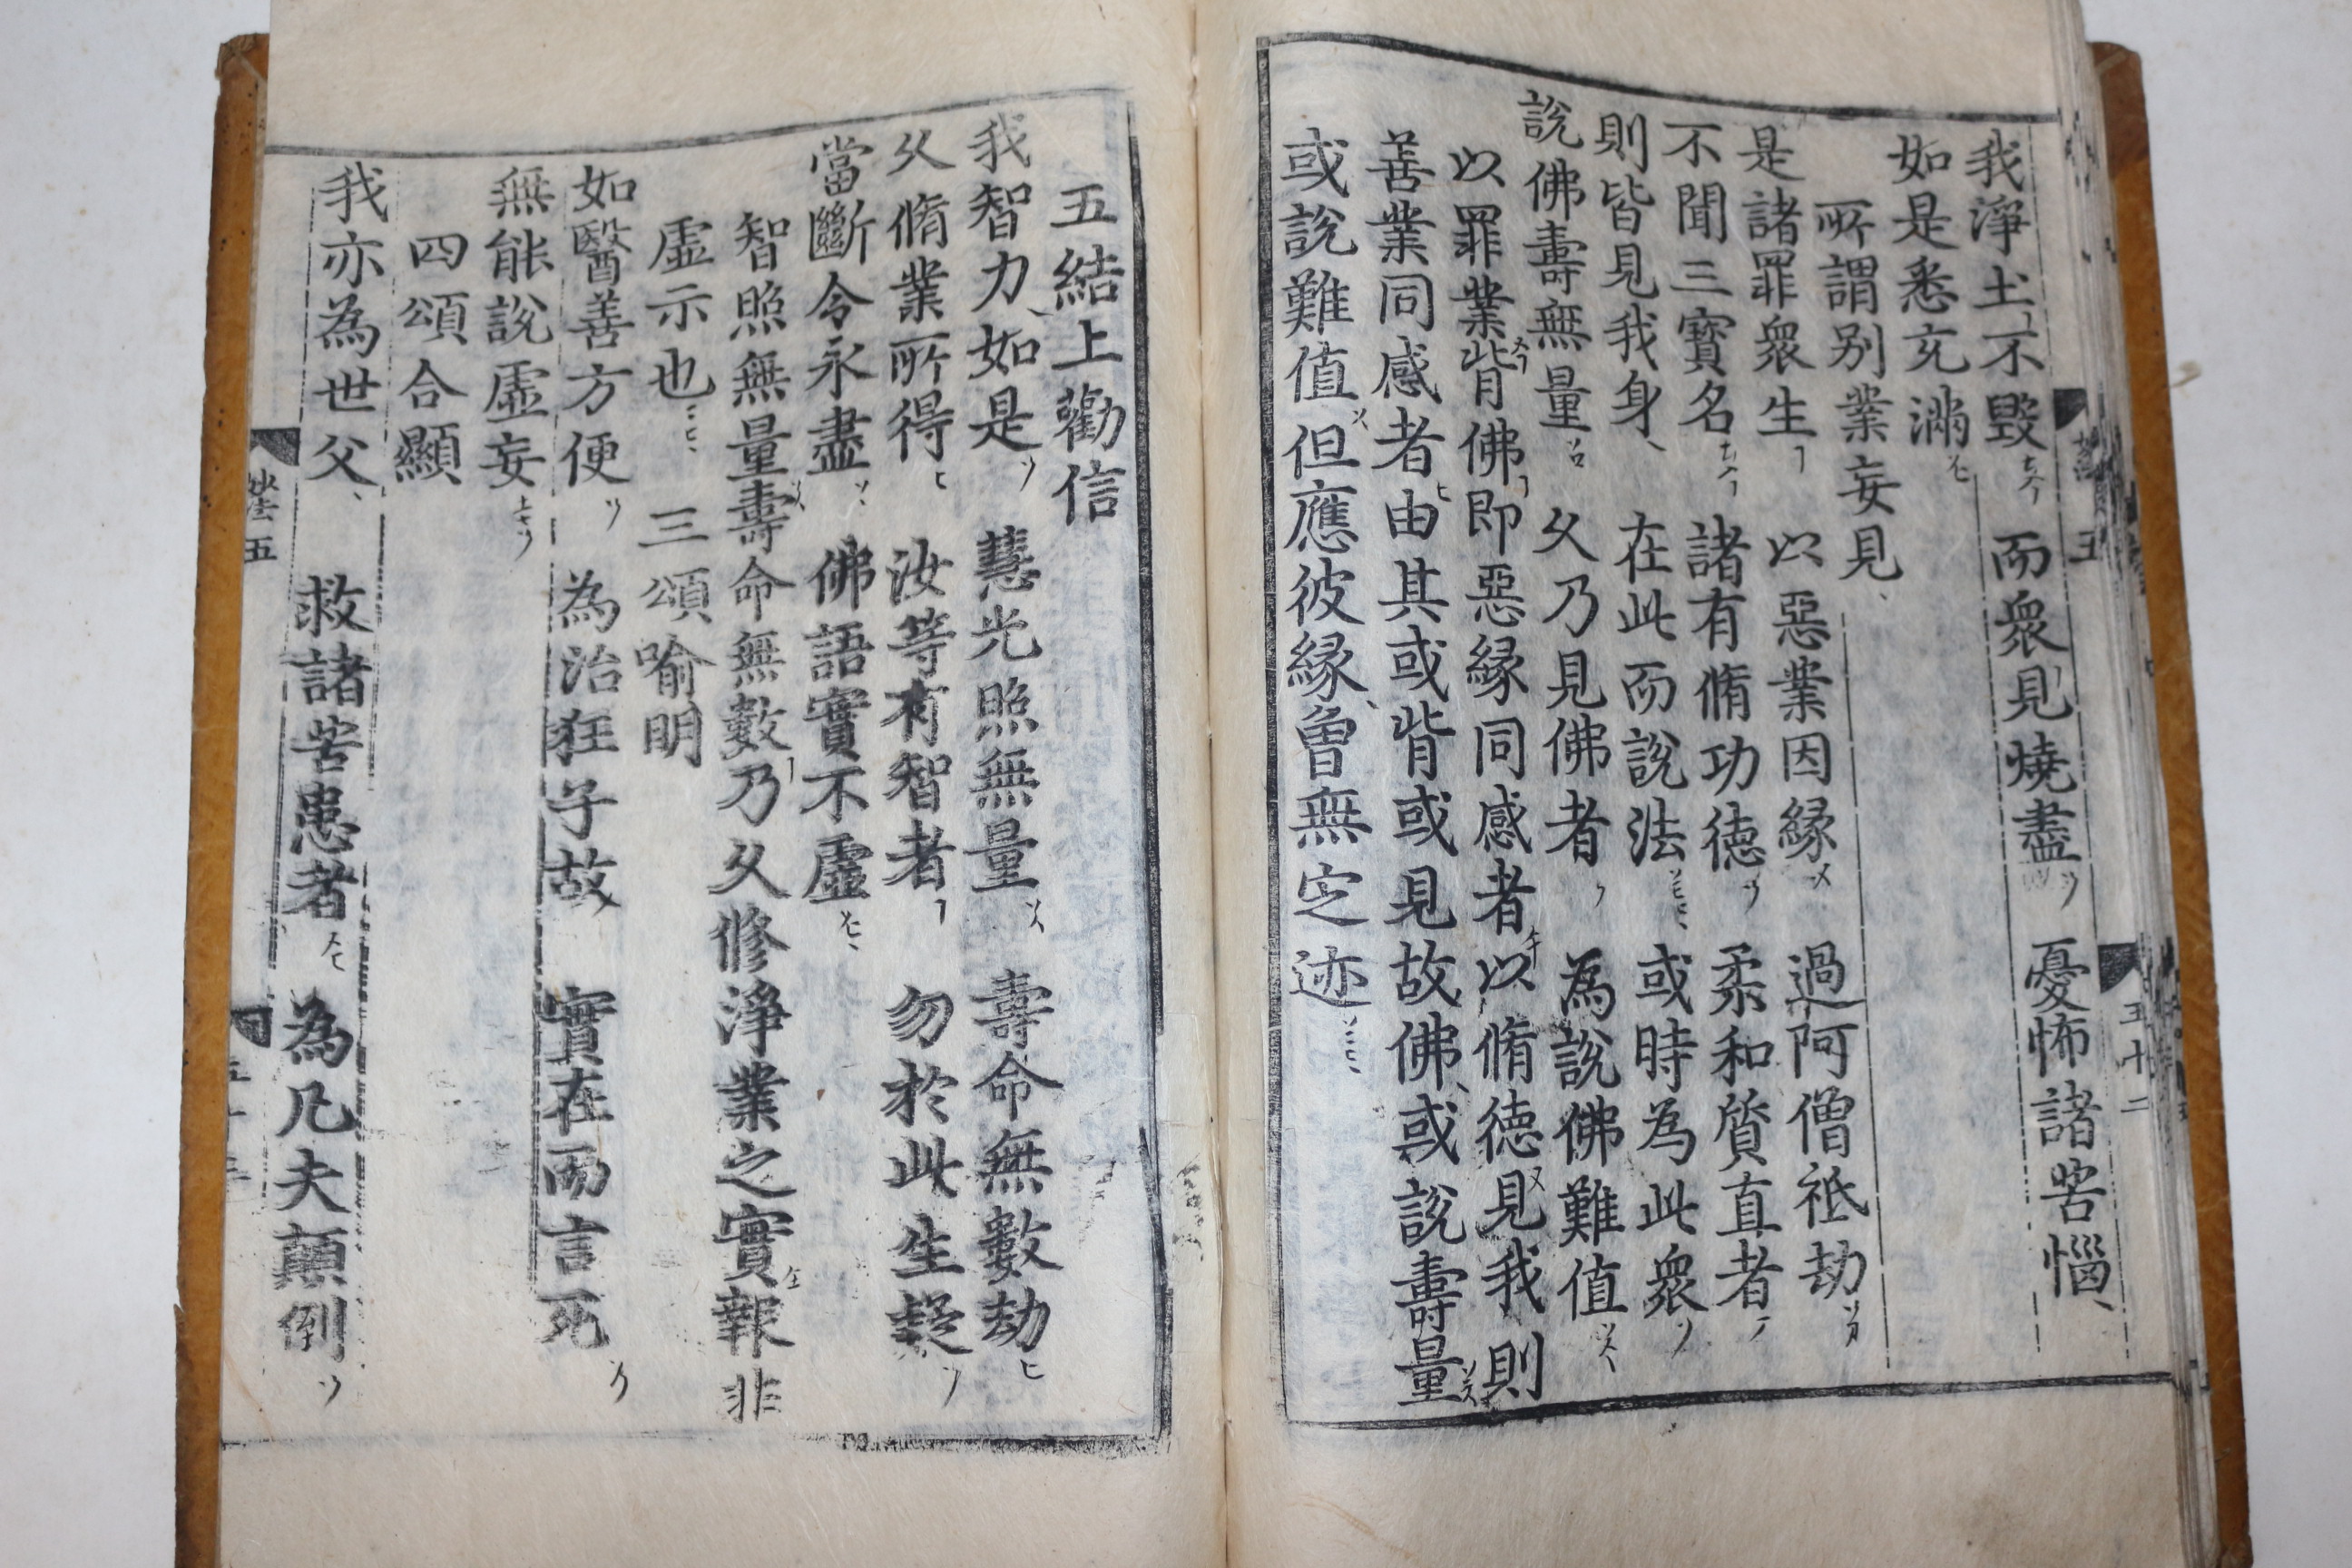 我淨土不毀 而衆見燒盡 憂怖諸苦惱
如是悉充滿
所謂別業妄見
是諸罪衆生 以惡業因緣 過阿僧祇劫
不聞三寳名 諸有脩功德 柔和質直者
則皆見我身 在此而說法 或時為此衆
說佛壽無量 久乃見佛者 為說佛難值
以罪業背佛即惡緣同感者以脩德見我則
善業同感者由其或背或見故佛或說壽量
或說難值但應彼緣曾無定迹
五結上勸信
我智力如是 慧光照無量 壽命無數劫
久脩業所得 汝等有智者 勿於此生疑
當斷令永盡 佛語實不虛
智照無量壽命無數乃久修淨業之實報非
虛示也 三頌喻明
如醫善方便 為治狂子故 實在而言死
無能說虛妄
四頌合顯
我亦為世父 救諸苦患者 為凡夫顛倒
妙法五